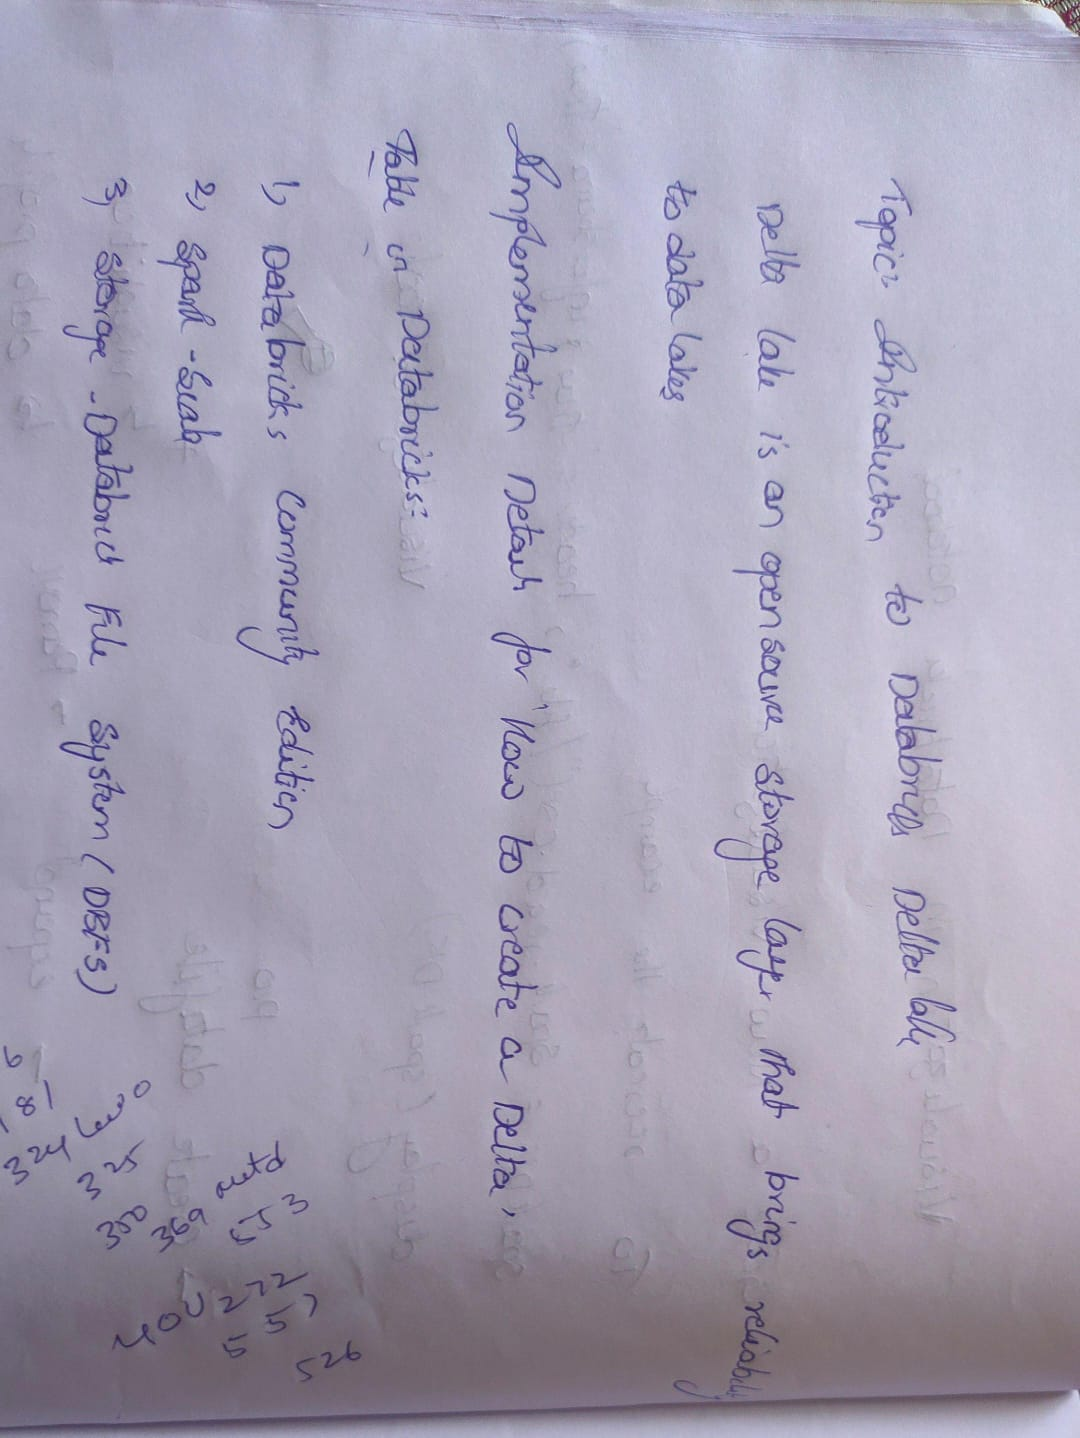 Topic: Introduction to Databricks Delta lake
Delta lake is an open source storage layer that brings reliability
to data lakes
Implementation Details for How to create a Delta,
Table in Databricks:
1, Databricks Community Edition
2, Spark - Scala
3, Storage - Databricks File System (DBFS)
324
325
350
369
553
400
526